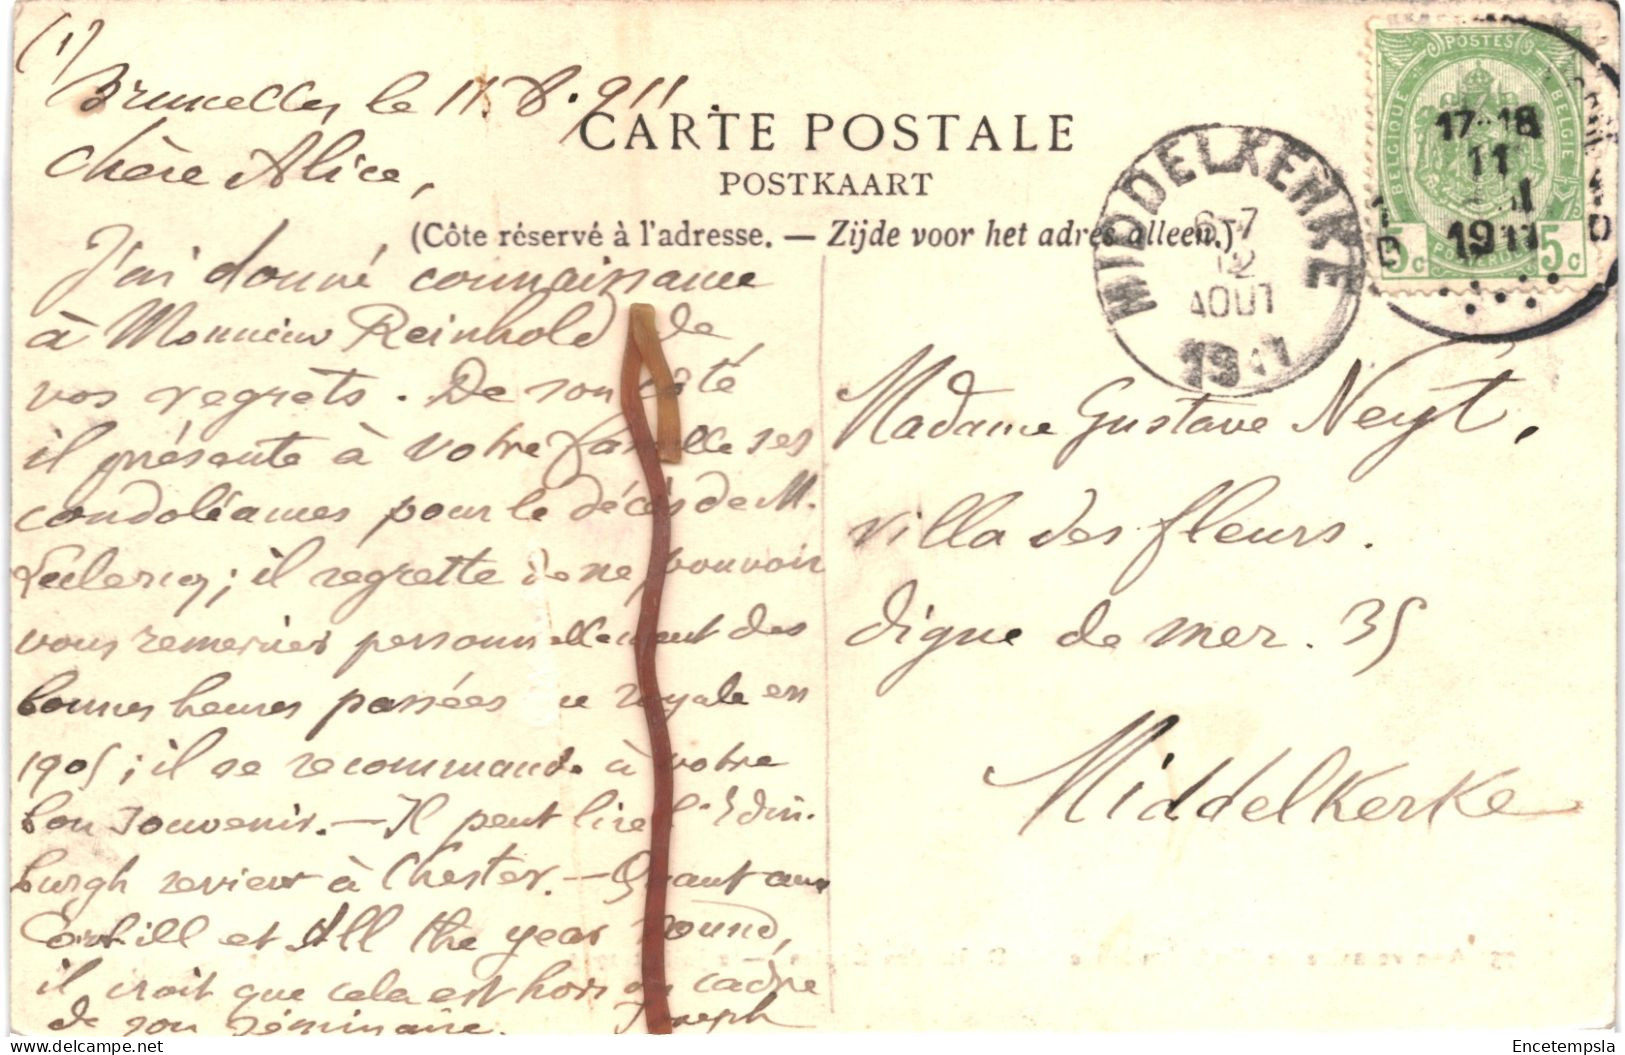 (1)
Bruxelles le 11.8.911
Chère Alice,
J'ai donné connaissance
à Monsieur Reinhold de
vos regrets. De son côté
il présente à votre famille ses
condoléances pour le décès de M.
Leclercq; il regrette de ne pouvoir
vous remercier personnellement des
bonnes heures passées rue royale en
1905; il se recommande à votre
bon souvenir. — Il peut lire l'Edin-
burgh review à Chester. — Quant au
Cornhill et All the year round,
il croit que cela est hors du cadre
de son séminaire. Joseph
CARTE POSTALE
POSTKAART
(Côte réservé à l'adresse. — Zijde voor het adres alleen.)
MIDDELKERKE
6-7
12
AOUT
1911
POSTES
BELGIQUE
BELGIE
5c 5c
17-18
11
1911
Madame Gustave Neyt,
villa des fleurs.
digue de mer. 35
Middelkerke
delcampe.net
Encetempsla